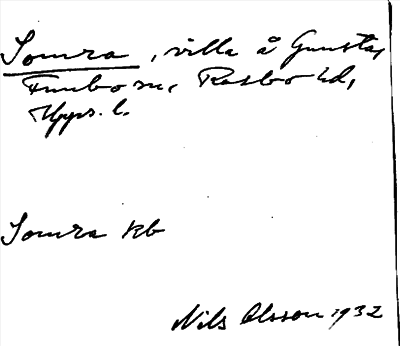 Somra, villa å Gunsta,
Funbo sn, Rasbo hd,
Upps. l.
Somra kb
Nils Olsson 1932